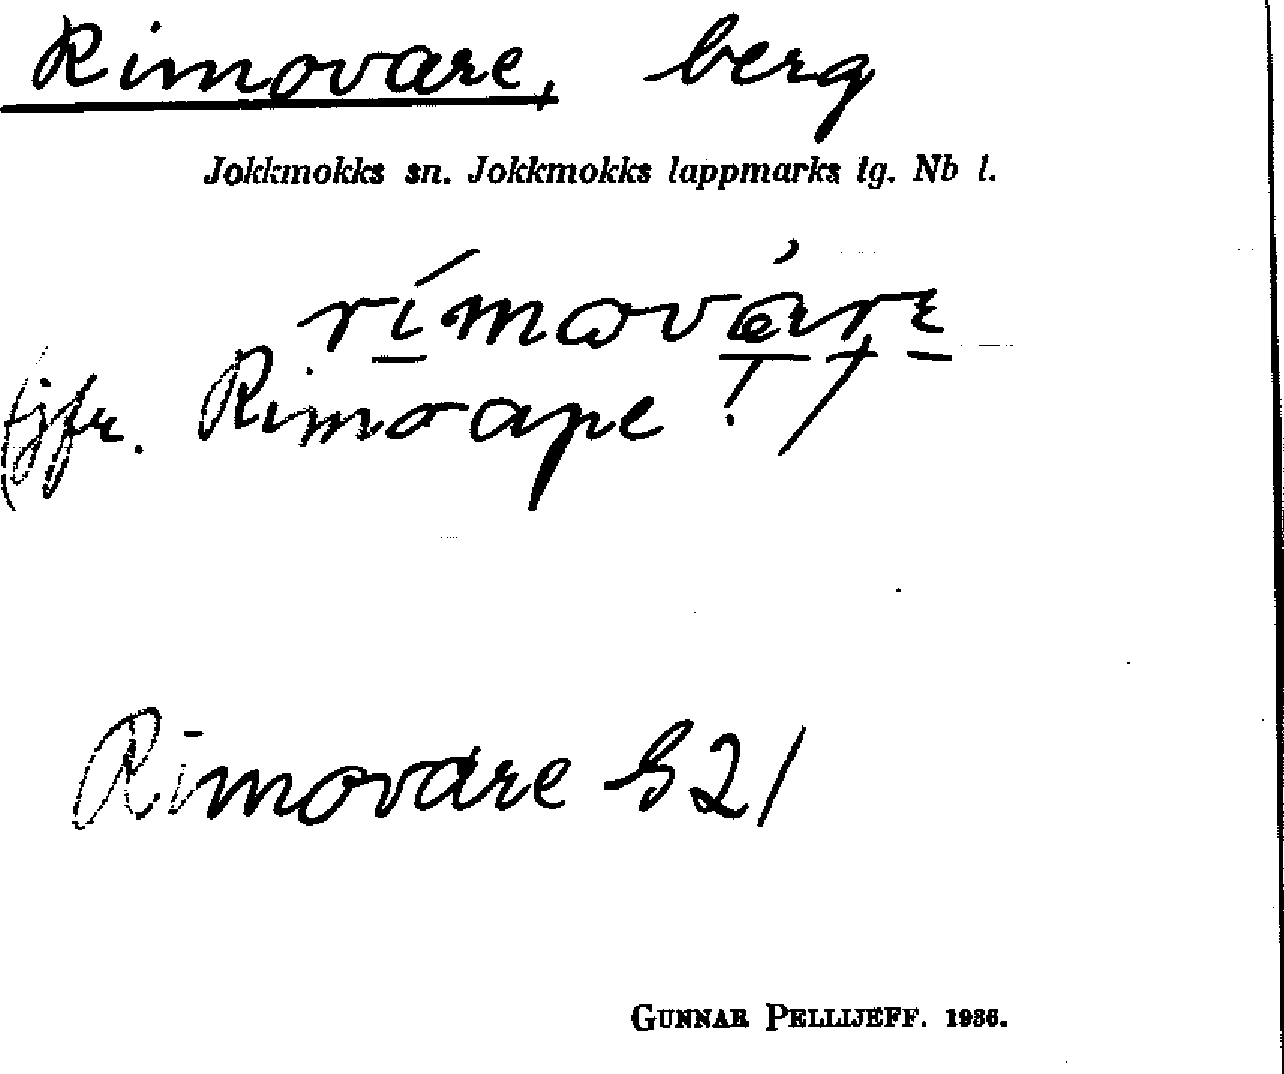 Rimovare, berg
Jokkmokks sn. Jokkmokks lappmarks tg. Nb l.
rímovárɛ
(jfr. Rimoape!)
Rimovare S21
GUNNAR PELLIJEFF. 1936.